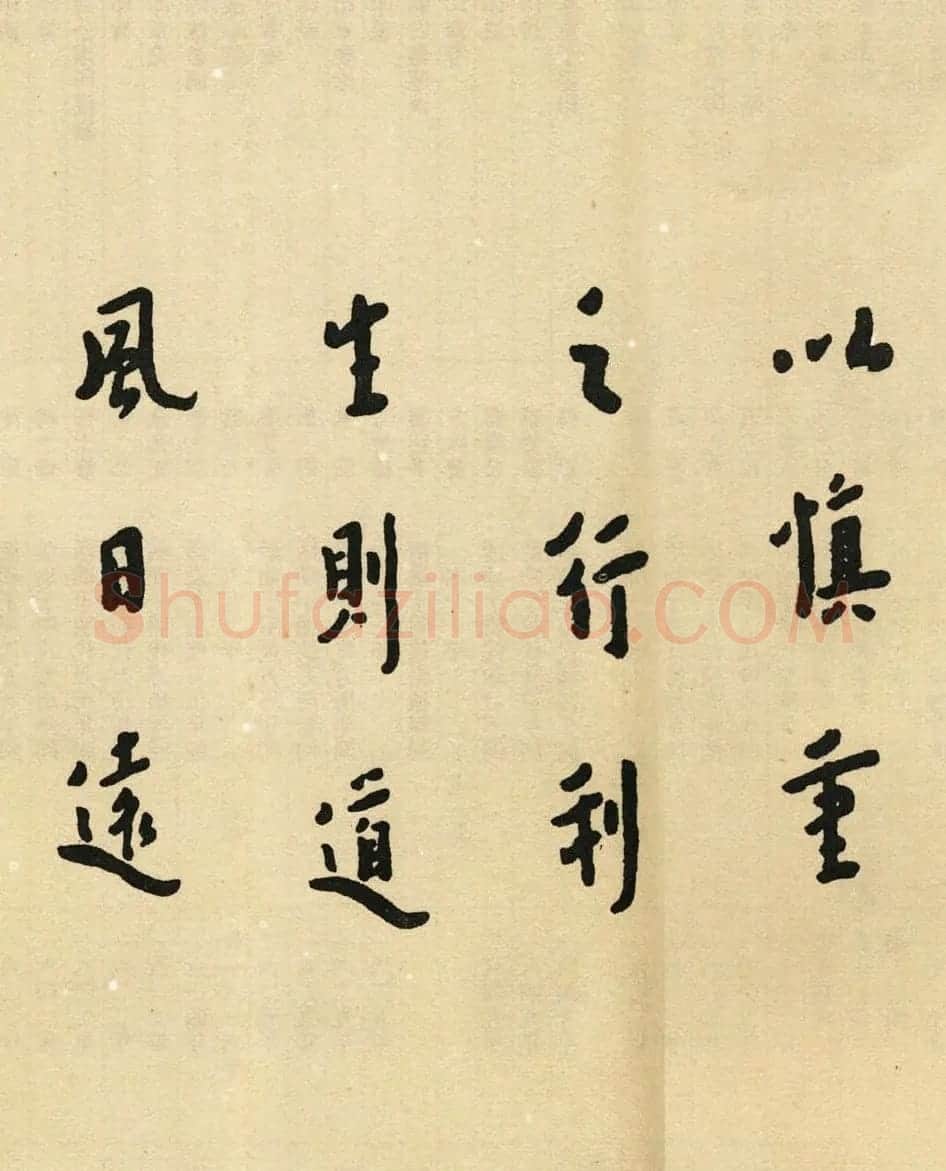 以慎重
之行利
生則道
風日遠
Shufaziliao.COM